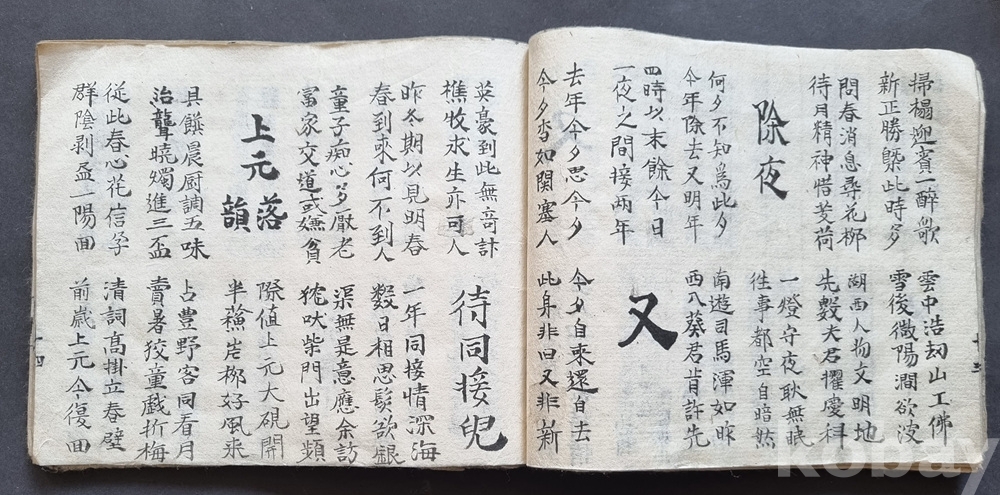 掃榻迎賓一醉歌
新正勝槩此時多
雲中浩劫山工佛
雪後微陽澗欲波
問春消息尋花柳
待月精神惜芰荷
湖西人物文明地
先數夫君擢慶科
十三
除夜
一燈守夜耿無眠
徃事都空自暗然
何夕不知爲此夕
今年除去又明年
南遊司馬渾如昨
西八葵君肯許先
四時以末餘今日
一夜之間接兩年
又
去年今夕思今夕
今夕杳如關塞人
今夕自来還自去
此身非旧又非新
英豪到此無奇計
樵牧求生亦可人
待同接皃
昨冬期以見明春
春到来何不到人
一年同接情深海
數日相思鬂欲銀
童子痴心多厭老
富家交道或嫌貧
渠無是意應余訪
狵吠柴門出望頻
上元落韻
際値上元大硯開
半蘓岩柳好風来
具饌晨厨調五味
治聾曉燭進三盃
占豊野客同看月
賣暑狡童戲折梅
從此春心花信孕
群陰剥盡一陽回
清詞高掛立春壁
前歲上元今復回
十四
kobay